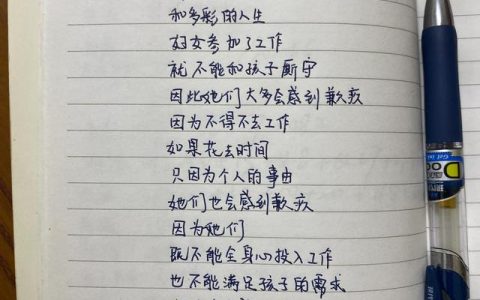 和多彩的人生
妇女参加了工作
就不能和孩子厮守
因此她们大多会感到歉疚
因为不得不去工作
如果花去时间
只因为个人的事由
她们也会感到歉疚
因为她们
既不能全身心投入工作
也不能满足孩子的需求